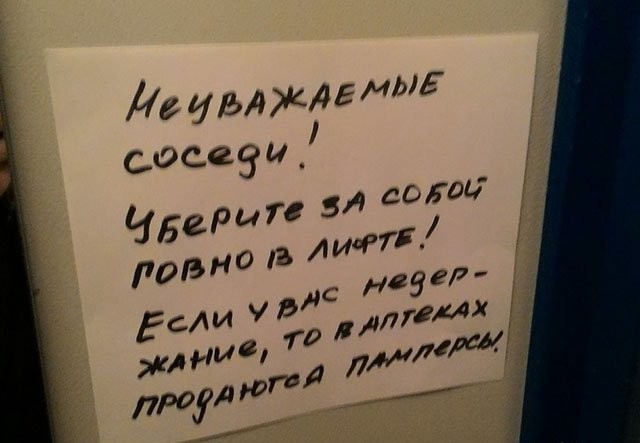 Неуважаемые
соседи!
Уберите за собой
говно в лифте!
Если у вас недер-
жание, то в аптеках
продаются памперсы!